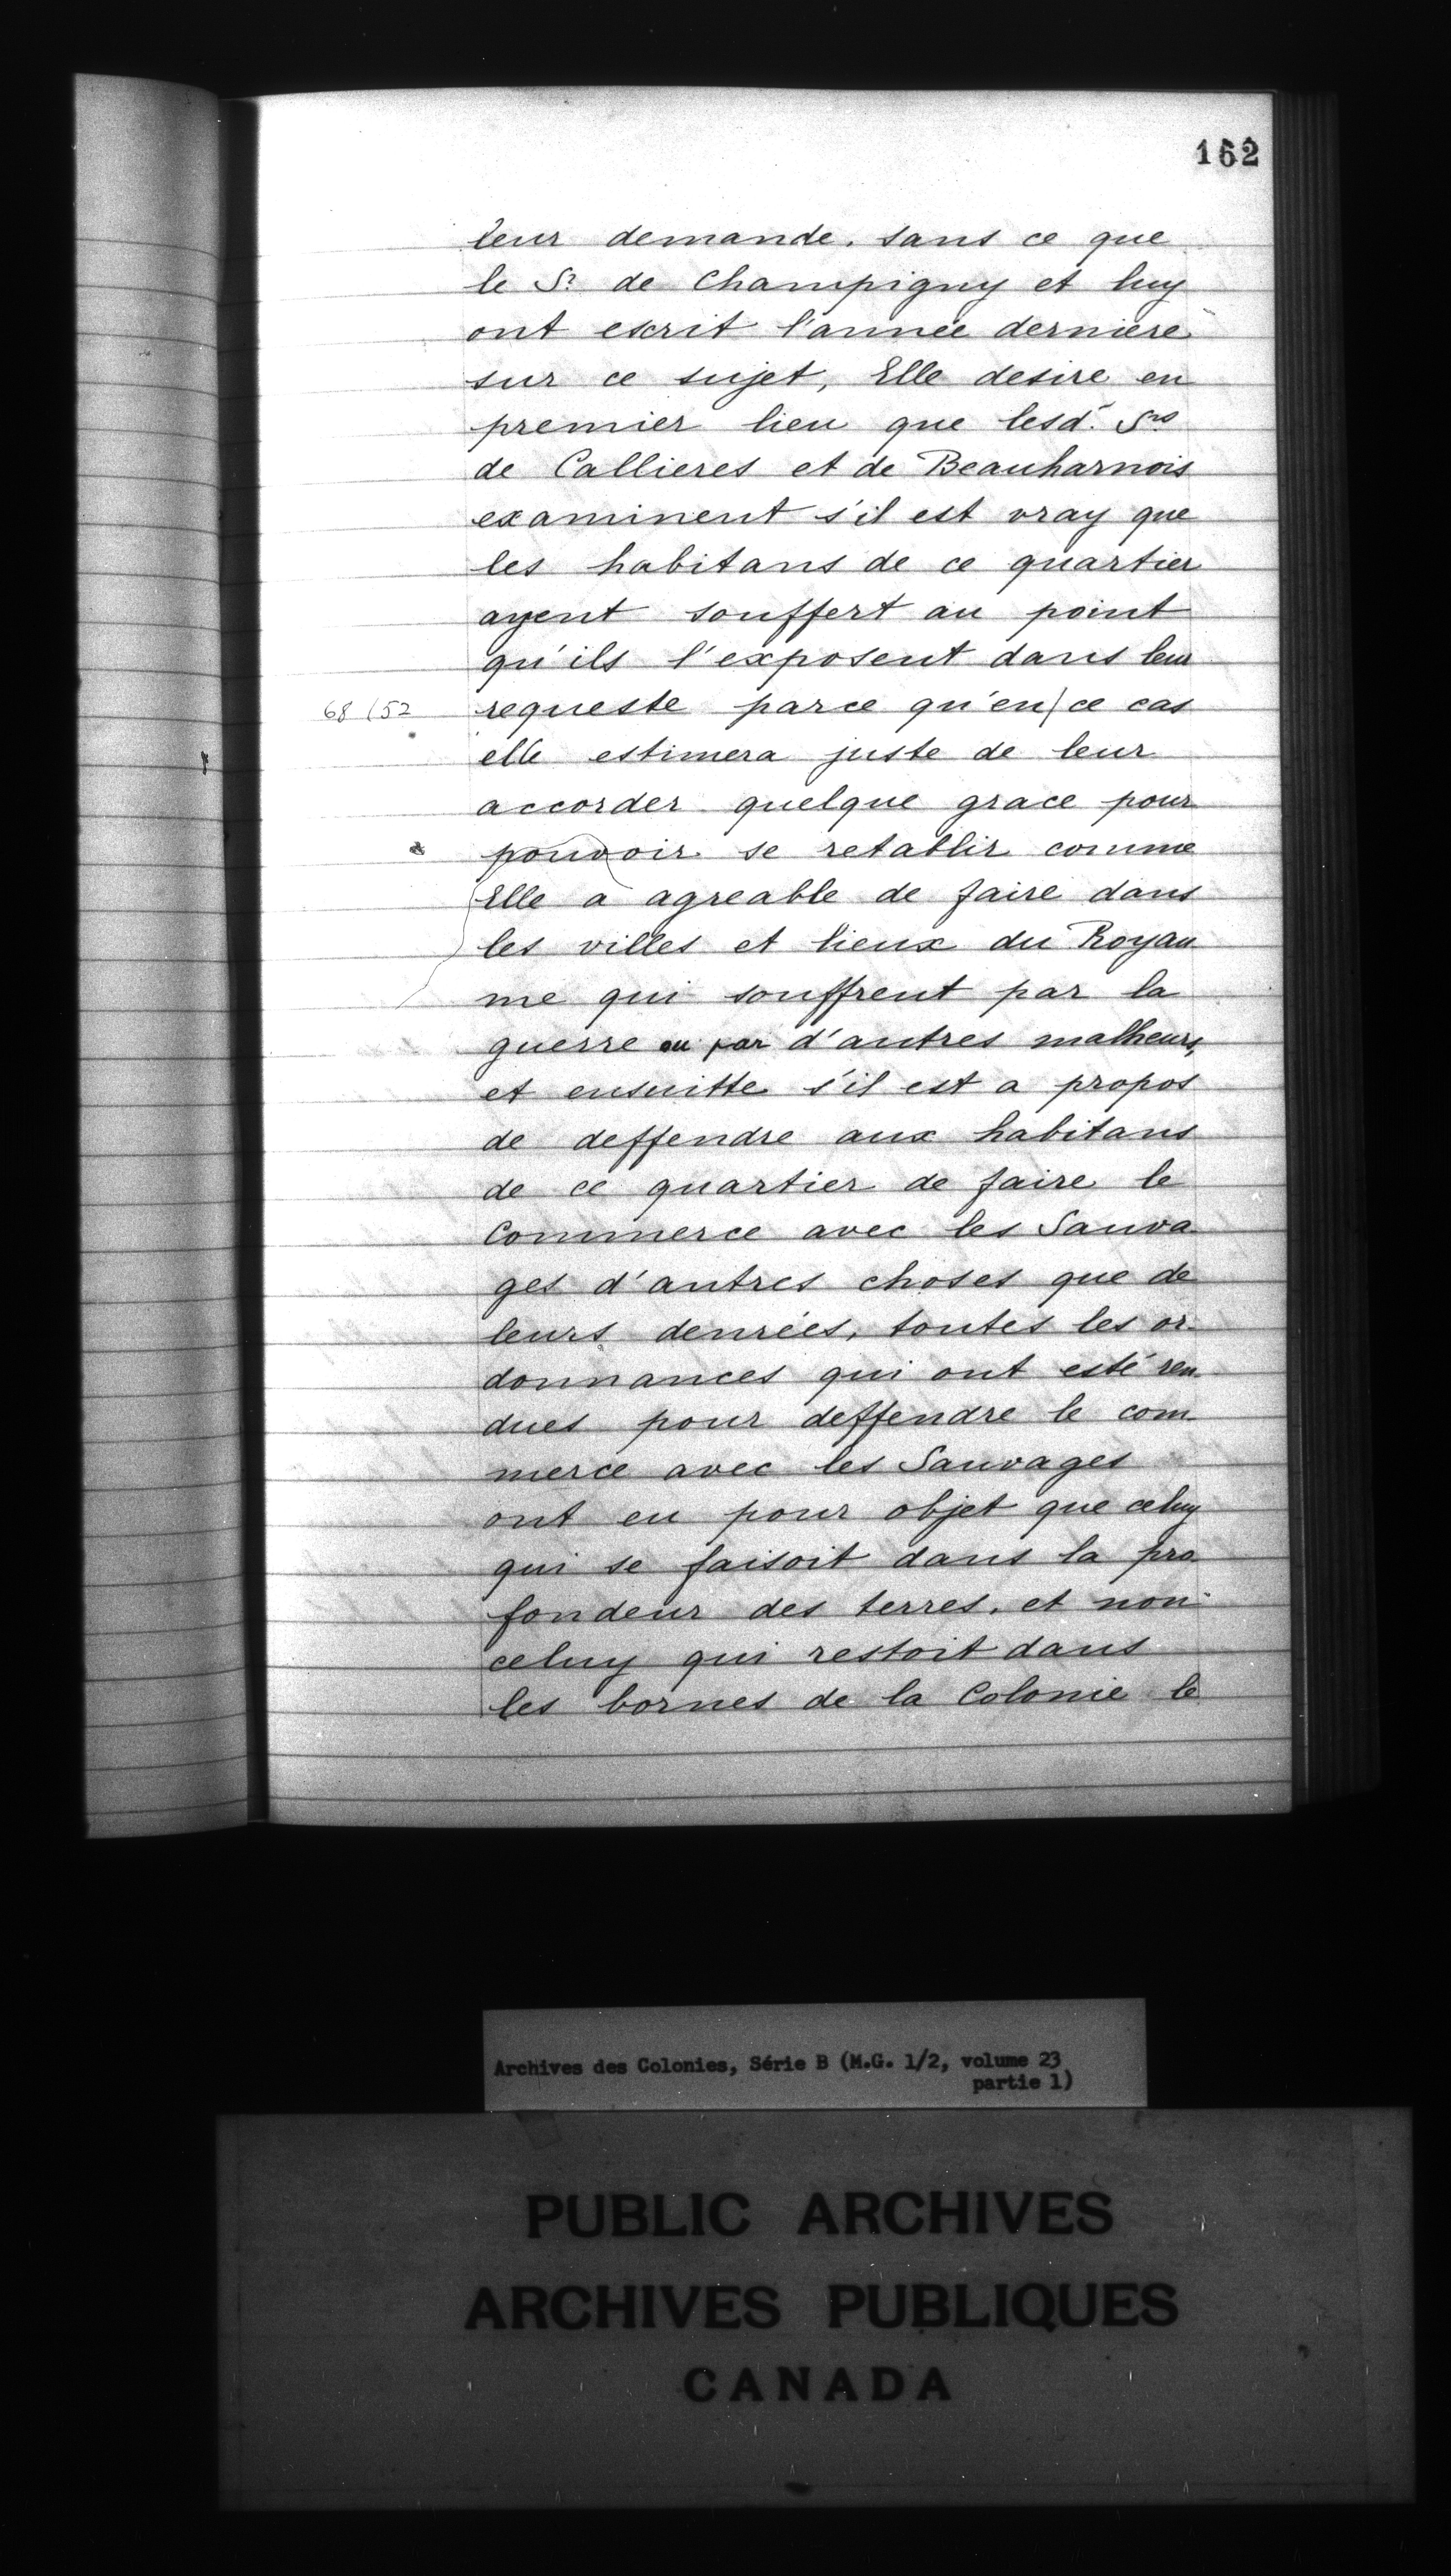 162
leur demande. sans ce que
le Sr. de Champigny et luy
ont escrit l'année derniere
sur ce sujet, Elle desire en
premier lieu que lesd. Srs
de Callieres et de Beauharnois
examinent s'il est vray que
les habitans de ce quartier
ayent souffert au point
qu'ils l'exposent dans leur
68 (52 requeste parce qu'en/ce cas
elle estimera juste de leur
accorder quelque grace pour
pouvoir se retablir comme
Elle a agreable de faire dans
les villes et lieux du Royau
me qui souffrent par la
guerre ou par d'autres malheurs,
et ensuitte s'il est a propos
de deffendre aux habitans
de ce quartier de faire le
Commerce avec les Sauva
ges d'autres choses que de
leurs denrées, toutes les or-
donnances qui ont esté ren-
dues pour deffendre le com-
merce avec les Sauvages
ont eu pour objet que celuy
qui se faisoit dans la pro-
fondeur des terres, et non
celuy qui restoit dans
les bornes de la Colonie le
Archives des Colonies, Série B (M.G. 1/2, volume 23
partie 1)
PUBLIC ARCHIVES
ARCHIVES PUBLIQUES
CANADA